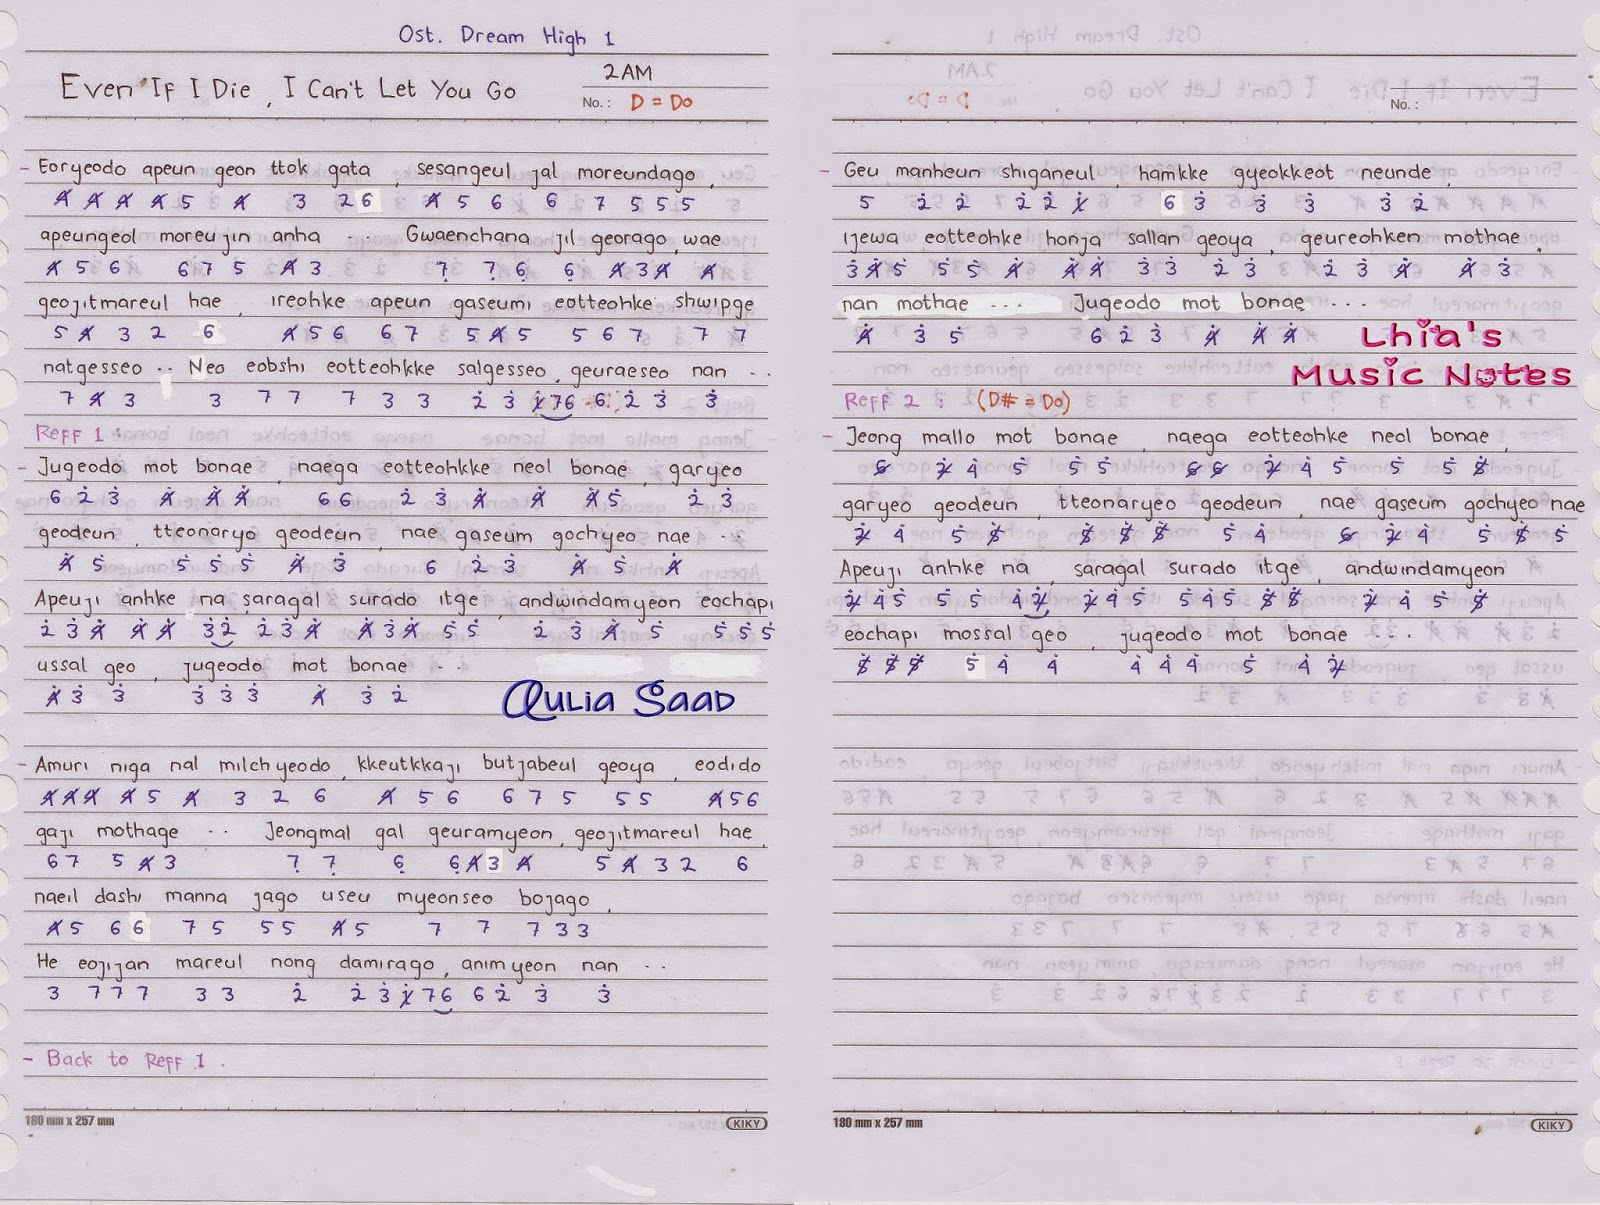 Ost. Dream High 1
Even If I Die, I Can't Let You Go
2AM
No. : D = Do
- Eoryeodo apeun geon ttok gata , sesangeul jal moreundago ,
4̸ 4̸ 4̸ 4̸ 5 4̸ 3 2 6 4̸ 5 6 6 7 5 5 5
apeungeol moreujin anha ... Gwaenchana jil georago, wae
4̸ 5 6 6 7 5 4̸ 3 7̣ 7̣ 6̣ 6̣ 4̸ 3 4̸ 4̸
geojitmareul hae , ireohke apeun gaseumi eotteohke shwipge
5 4̸ 3 2 6 4̸ 5 6 6 7 5 4̸ 5 5 6 7 7 7
natgesseo .. Neo eobshi eotteohkke salgesseo, geuraeseo nan ..
7 4̸ 3 3 7 7 7 3 3 2̇ 3̇ 1̸̇ 7 6 6 2̇ 3̇ 3̇
Reff 1 :
- Jugeodo mot bonae , naega eotteohkke neol bonae, garyeo
6 2̇ 3̇ 4̸̇ 4̸̇ 4̸̇ 6 6 2̇ 3̇ 4̸̇ 4̸̇ 4̸̇ 5̇ 2̇ 3̇
geodeun , tteonaryo geodeun , nae gaseum gochyeo nae ...
4̸̇ 5̇ 5̇ 5̇ 5̇ 4̸̇ 3̇ 6 2̇ 3̇ 4̸̇ 5̇ 4̸̇
Apeuji anhke na, saragal surado itge , andwindamyeon eochapi
2̇ 3̇ 4̸̇ 4̸̇ 4̸̇ 3̇ 2̇ 2̇ 3̇ 4̸̇ 4̸̇ 3̇ 4̸̇ 5̇ 5̇ 2̇ 3̇ 4̸̇ 5̇ 5̇ 5̇ 5̇
ussal geo , jugeodo mot bonae ..
4̸̇ 3̇ 3̇ 3̇ 3̇ 3̇ 4̸̇ 3̇ 2̇
Qulia Saad
- Amuri niga nal milchyeodo, kkeutkkaji butjabeul geoya , eodido
4̸ 4̸ 4̸ 4̸ 5 4̸ 3 2 6 4̸ 5 6 6 7 5 5 5 4̸ 5 6
gaji mothage .. Jeongmal gal geuramyeon, geojitmareul hae,
6 7 5 4̸ 3 7̣ 7̣ 6̣ 6̣ 4̸ 3 4̸ 5 4̸ 3 2 6
naeil dashi manna jago useu myeonseo bojago ,
4̸ 5 6 6 7 5 5 5 4̸ 5 7 7 7 3 3
He eojijan mareul nong damirago, animyeon nan ..
3 7 7 7 3 3 2̇ 2̇ 3̇ 1̸̇ 7 6 6 2̇ 3̇ 3̇
- Back to Reff 1 .
180 mm x 257 mm
KIKY
No. :
- Geu manheun shiganeul , hamkke gyeokkeot neunde ,
5 2̇ 2̇ 2̇ 2̇ 1̸̇ 6 3̇ 3̇ 3̇ 3̇ 2̇
ijewa eotteohke honja sallan geoya , geureohken mothae ,
3̇ 4̸̇ 5̇ 5̇ 5̇ 4̸̇ 4̸̇ 4̸̇ 3̇ 3̇ 2̇ 3̇ 2̇ 3̇ 4̸̇ 4̸̇ 3̇
nan mothae ... Jugeodo mot bonae ...
4̸̇ 3̇ 5̇ 6 2̇ 3̇ 4̸̇ 4̸̇ 4̸̇
Lhia's
Music Notes
Reff 2 : (D# = Do)
- Jeong mallo mot bonae , naega eotteohke neol bonae,
6̸ 2̸̇ 4̇ 5̇ 5̇ 5̇ 6̸ 6̸ 2̸̇ 4̇ 5̇ 5̇ 5̇ 5̸̇
garyeo geodeun , tteonaryeo geodeun , nae gaseum gochyeo nae
2̸̇ 4̇ 5̇ 5̸̇ 5̸̇ 5̸̇ 5̸̇ 5̇ 4̇ 6̸ 2̸̇ 4̇ 5̇ 5̸̇ 5̇
Apeuji anhke na , saragal surado itge , andwindamyeon
2̸̇ 4̇ 5̇ 5̇ 5̇ 4̇ 2̸̇ 2̸̇ 4̇ 5̇ 5̇ 4̇ 5̇ 5̸̇ 5̸̇ 2̸̇ 4̇ 5̇ 5̸̇
eochapi mossal geo , jugeodo mot bonae ...
5̸̇ 5̸̇ 5̸̇ 5̇ 4̇ 4̇ 4̇ 4̇ 4̇ 5̇ 4̇ 2̸̇
180 mm x 257 mm
KIKY